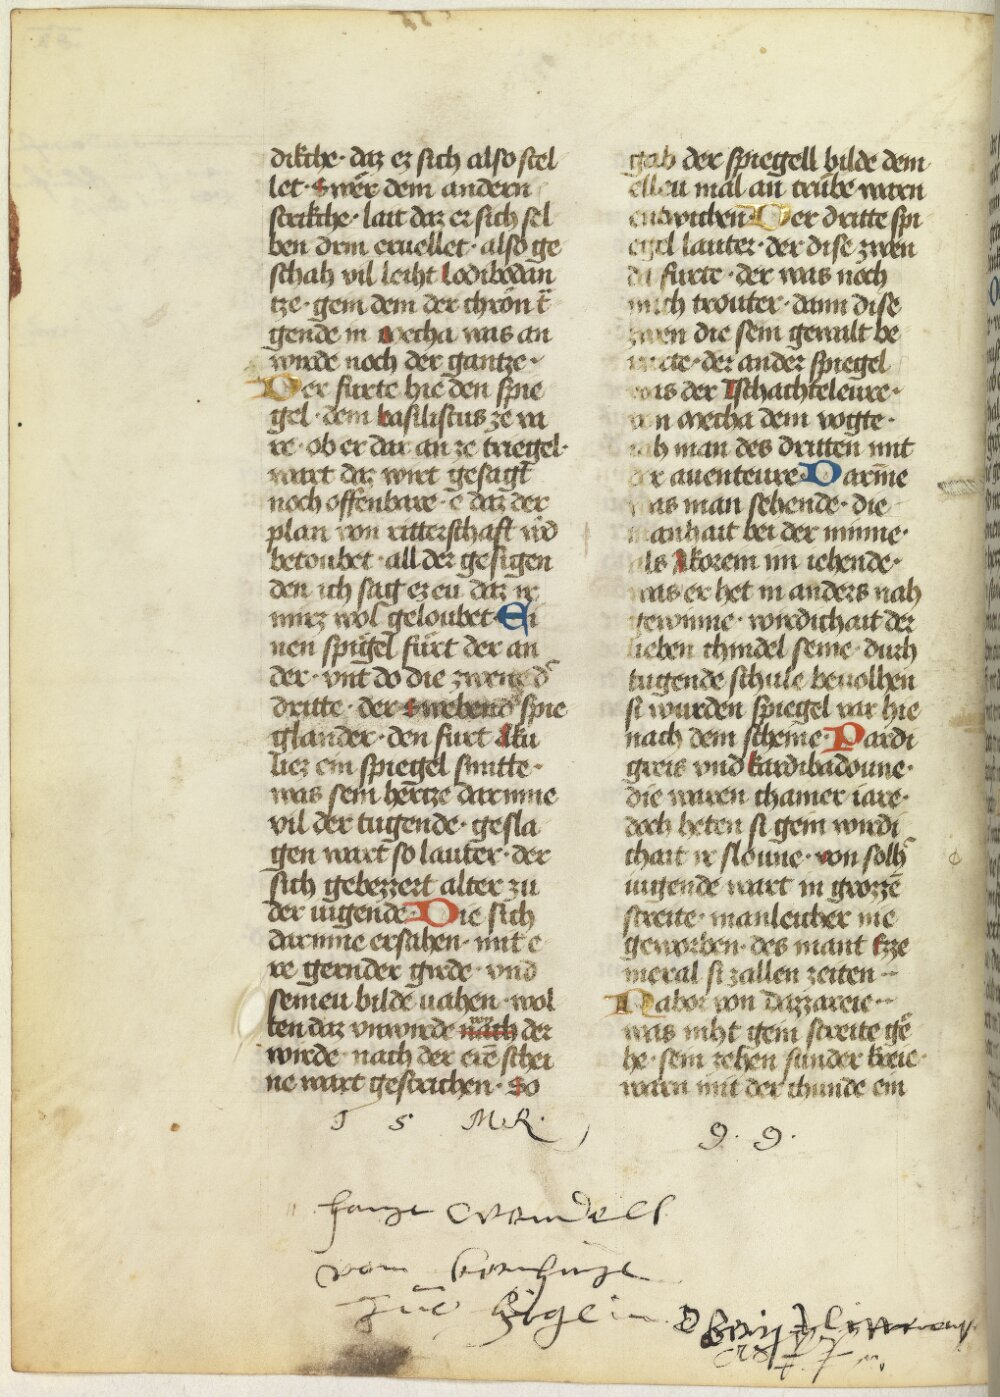 dikche · daz ez sich also stel
let · swer dem andern
strikche · lait daz er sich sel
ben drin ervellet · also ge
schah vil leiht Lodibodan
tze · gein dem der chrön t̄
gende in Mecha was an
wirde noch der gantze ·
Der fürte hie den spie
gel · dem basiliscus ze va
re · ob er dar an ze triegel ·
wart daz wirt gesagt
noch offenbare · e daz der
plan von ritterschaft wd
betoubet · all der gesigen
den ich sag ez eu daz ir
mirz wol geloubet · Ei
nen spigel fürt der an
der · vnt do die zwene d
dritte · der swebend spie
glander · den furt Aku
liez ein spiegel smitte ·
was sein hertze darinne
vil der tugende · gesla
gen wart so lauter · der
sich gebezzert alter zu
der iugende · Die sich
darinne ersahen · mit e
re gernder girde · vnd
seineu bilde nahen · wol
ten daz vnwirde nach von der
wirde · nach der ere schei
ne wart gestrichen · So
gab der spiegell bilde dem
elleu mal an trübe warn
entwichen · Der dritte spi
egel lauter · der dise zwen
da furte · der was noch
mich trouter · dann dise
zwen die sein gewalt be
rurte · der ander spiegel
was der Tschachteleure ·
von Mecha dem vogte ·
iah man des dritten mit
der auenteure · Darinne
was man sehende · die
manhait bei der minne ·
als Akorein im iehende ·
was er het in anders nah
gewinne · wirdichait der
lieben chindel seine · durh
tugende schule bevolhen
si wurden spiegel var hie
nach dem scheine · Pardi
greis vnd kardibadoune ·
die waren chamer iare ·
doch heten si gein wirdi
chait ir sloune · von solh
iugende wart in grozze
streite · manleicher nie
geworben · des mant Ezze
meral si zallen zeiten ··
Nabor von dazzareie ··
was niht gein streite ge
he · sein zehen sunder kreie ·
warn mit der chunde ein
J S M. R.
G. G.